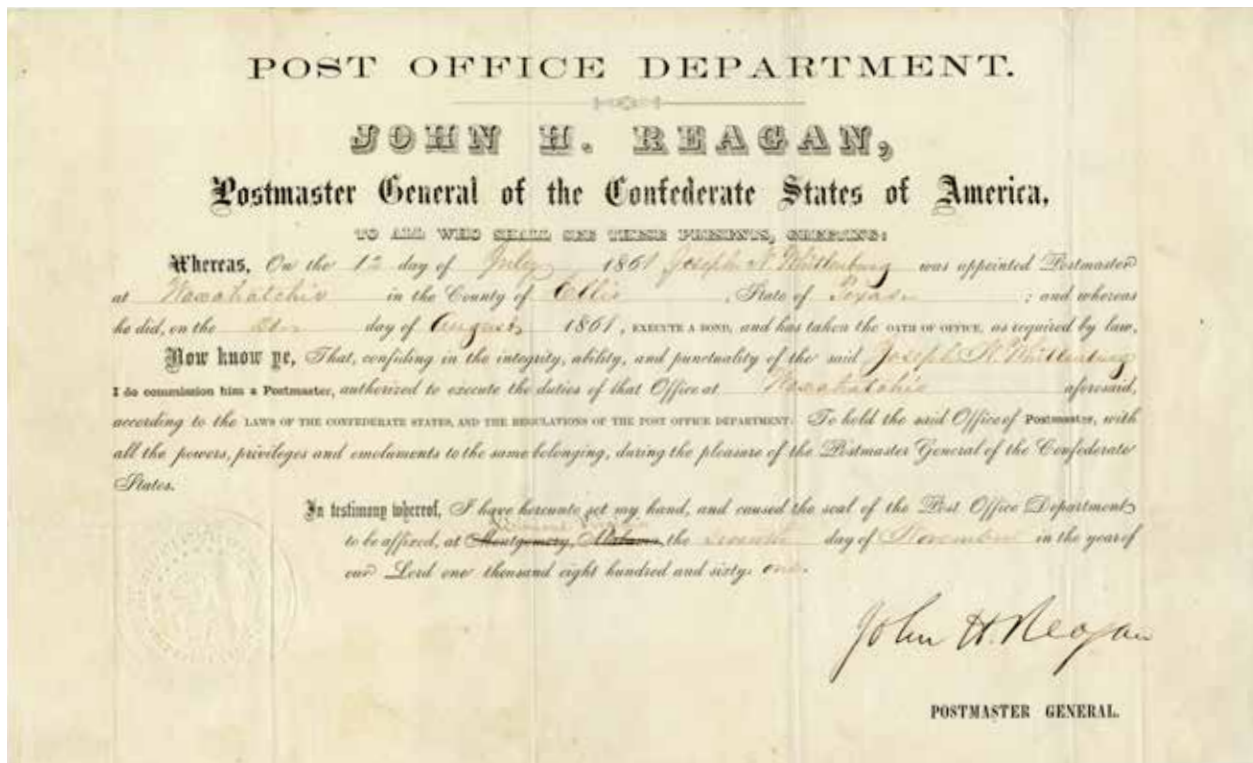 POST OFFICE DEPARTMENT.
JOHN H. REAGAN,
Postmaster General of the Confederate States of America,
TO ALL WHO SHALL SEE THESE PRESENTS, GREETING:
Whereas, On the 12 day of July 1861 Joseph N Whittenburg was appointed Postmaster
at Waxahatchie in the County of Ellis, State of Texas ; and whereas
he did, on the day of August 1861, EXECUTE A BOND, and has taken the OATH OF OFFICE, as required by law,
Now know ye, That, confiding in the integrity, ability, and punctuality of the said Joseph N. Whittenburg
I do commission him a Postmaster, authorized to execute the duties of that Office at Waxahatchie aforesaid,
according to the LAWS OF THE CONFEDERATE STATES, AND THE REGULATIONS OF THE POST OFFICE DEPARTMENT: To hold the said Office of Postmaster, with
all the powers, privileges and emoluments to the same belonging, during the pleasure of the Postmaster General of the Confederate
States.
In testimony whereof, I have hereunto set my hand, and caused the seal of the Post Office Department
to be affixed, at Montgomery, Alabama, the seventh day of November in the year of
our Lord one thousand eight hundred and sixty- one.
John H. Reagan
POSTMASTER GENERAL.